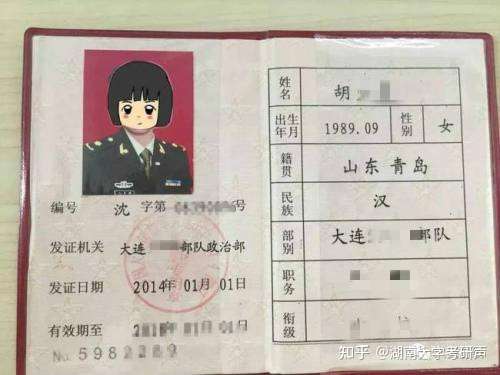 编号 沈 字第 号
发证机关 大连 部队政治部
发证日期 2014年01月01日
有效期至 01月01日
No 598
姓名 胡
出生年月 1989.09 性别 女
籍贯 山东青岛
民族 汉
部别 大连 部队
职务
衔级
知乎 @湖南大学考研声